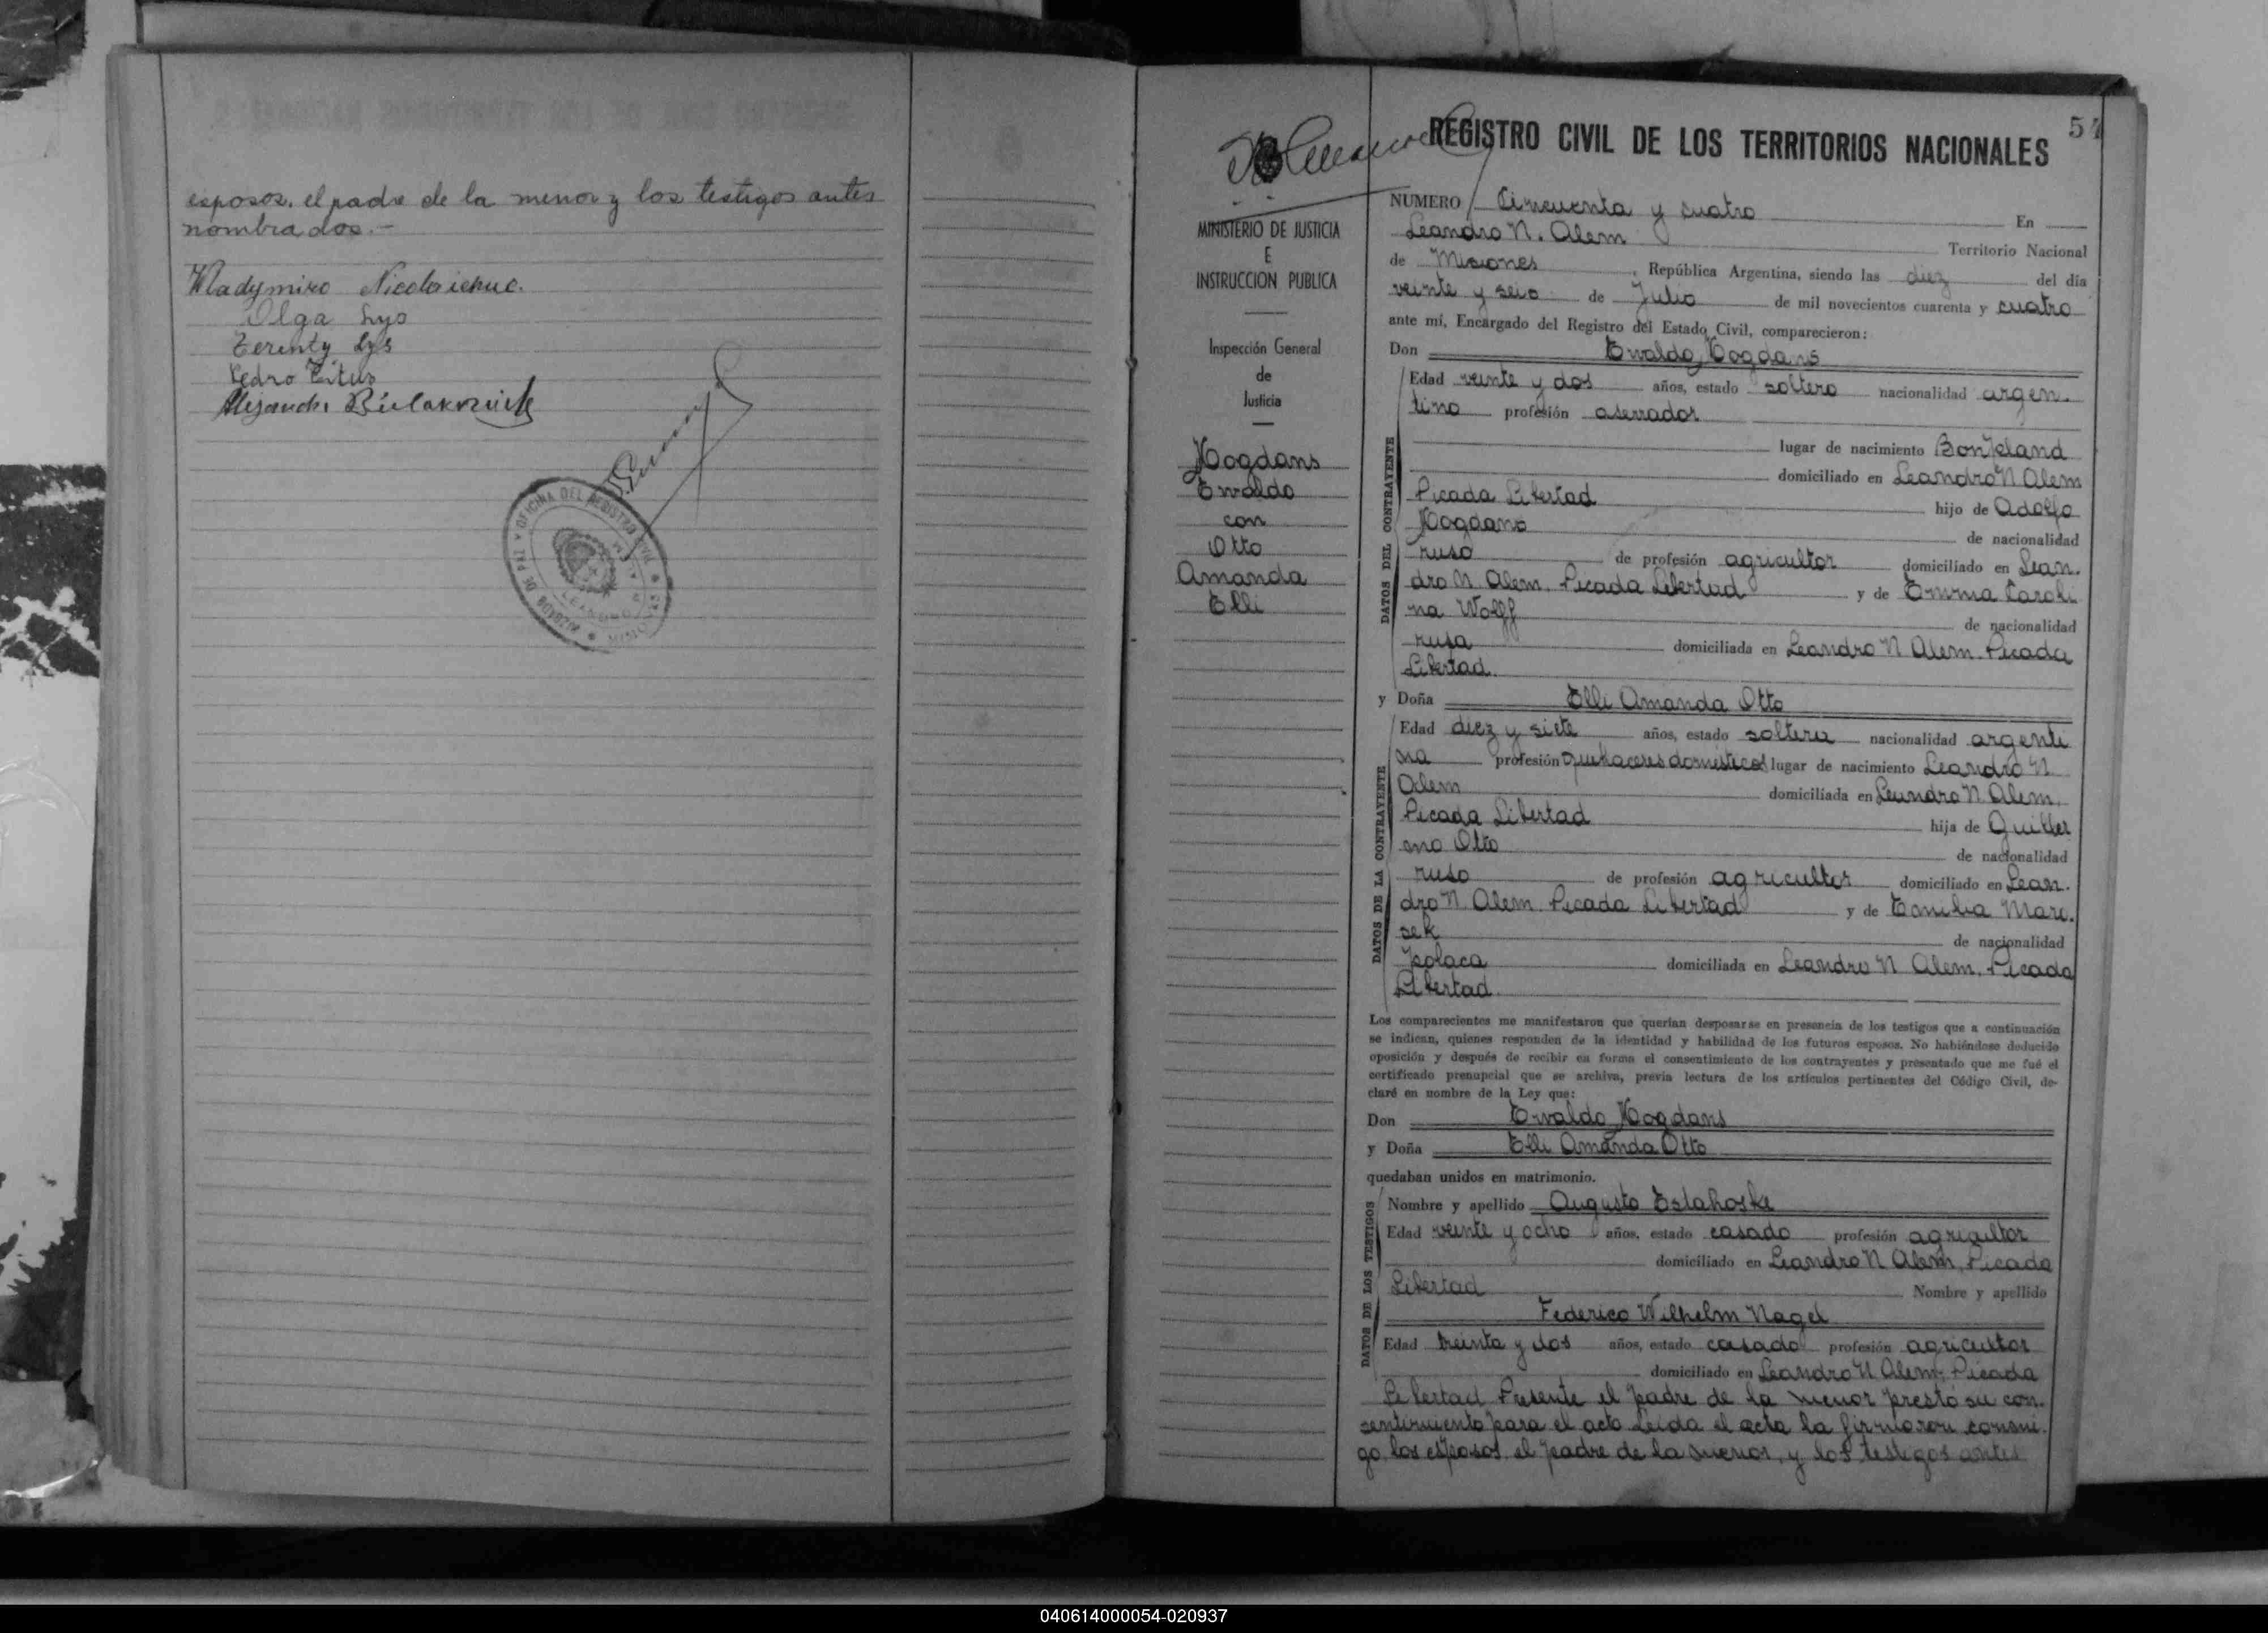 esposos, el padre de la menor y los testigos antes
nombrados.-
Wladymiro Nicolaichuc.
Olga Lys
Terenty Lys
Pedro Titus
OFICINA DEL REGISTRO CIVIL
JUZGADO DE PAZ Y
54
REGISTRO CIVIL DE LOS TERRITORIOS NACIONALES
MINISTERIO DE JUSTICIA
E
INSTRUCCION PUBLICA
Inspección General
de
Justicia
Hogdans
Ewaldo
con
Otto
Amanda
Elli
NUMERO Cincuenta y cuatro En
Leandro N. Alem Territorio Nacional
de Misiones, República Argentina, siendo las diez del día
veinte y seis de Julio de mil novecientos cuarenta y cuatro
ante mí, Encargado del Registro del Estado Civil, comparecieron:
Don Ewaldo Hogdans
DATOS DEL CONTRAYENTE
Edad veinte y dos años, estado soltero nacionalidad argen-
tino profesión aserrador
lugar de nacimiento Bonpland
domiciliado en Leandro N Alem
Picada Libertad hijo de Adolfo
Hogdans de nacionalidad
ruso de profesión agricultor domiciliado en Lean-
dro N. Alem, Picada Libertad y de Emma Caroli
na Wolff de nacionalidad
rusa domiciliada en Leandro N Alem. Picada
Libertad.
y Doña Elli Amanda Otto
DATOS DE LA CONTRAYENTE
Edad diez y siete años, estado soltera nacionalidad argenti
na profesión quehaceres domesticos lugar de nacimiento Leandro N
Alem domiciliada en Leandro N. Alem,
Picada Libertad hija de Guiller
mo Otto de nacionalidad
ruso de profesión agricultor domiciliado en Lean-
dro N. Alem, Picada Libertad y de Emilia Marc-
sek de nacionalidad
polaca domiciliada en Leandro N Alem, Picada
Libertad.
Los comparecientes me manifestaron que querían desposarse en presencia de los testigos que a continuación
se indican, quienes responden de la identidad y habilidad de los futuros esposos. No habiéndose deducido
oposición y después de recibir en forma el consentimiento de los contrayentes y presentado que me fué el
certificado prenupcial que se archiva, previa lectura de los artículos pertinentes del Código Civil, de-
claré en nombre de la Ley que:
Don Ewaldo Hogdans
y Doña Elli Amanda Otto
quedaban unidos en matrimonio.
DATOS DE LOS TESTIGOS
Nombre y apellido Augusto Eslahoske
Edad veinte y ocho años, estado casado profesión agricultor
domiciliado en Leandro N Alem, Picada
Libertad Nombre y apellido
Federico Wilhelm Nagel
Edad treinta y dos años, estado casado profesión agricultor
domiciliado en Leandro N Alem, Picada
Libertad Presente el padre de la menor prestó su con-
sentimiento para el acto Leida el acta la firmaron conmi-
go los esposos, el padre de la menor, y los testigos antes
040614000054-020937